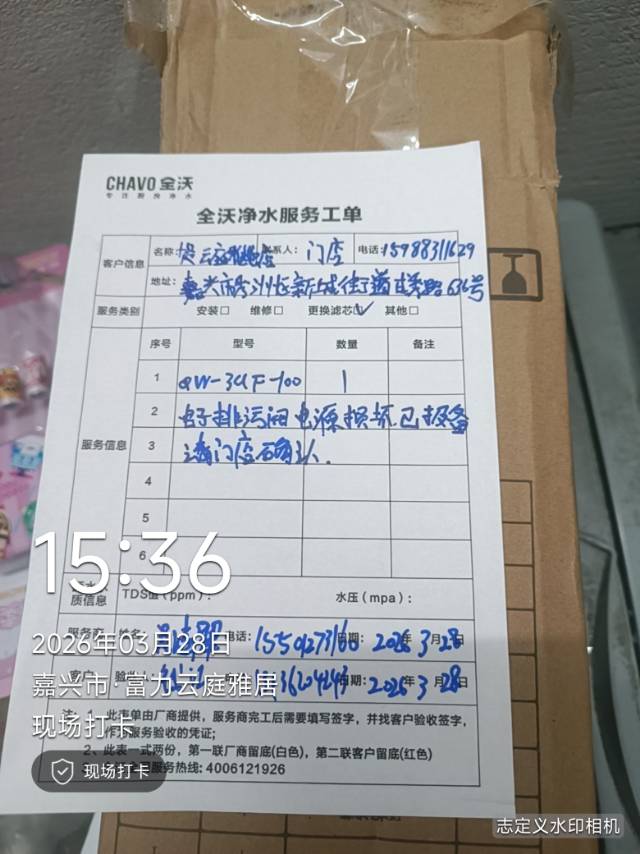 CHAVO 全沃
专注厨房净水
全沃净水服务工单
客户信息 名称: 云庭雅居店 联系人: 门店 电话: 15988311629
地址: 嘉兴市秀洲区新城街道 路636号
服务类别 安装□ 维修□ 更换滤芯☑ 其他□
服务信息 序号 型号 数量 备注
1 QW-3UF-100 1
2 电子排污阀电源损坏已报备
3 请门店确认.
4
5
6
15:36
质信息 TDS值(ppm): 水压(mpa):
2026年03月28日
服务商 姓名: 电话: 15501273166 日期: 2026年3月28日
嘉兴市·富力云庭雅居
客户 验收人: 日期: 2026年3月28日
现场打卡
注: 1、此表单由厂商提供，服务商完工后需要填写签字，并找客户验收签字，
作为服务验收的凭证;
2、此表一式两份，第一联厂商留底(白色)，第二联客户留底(红色)
现场打卡
服务热线: 4006121926
志定义水印相机